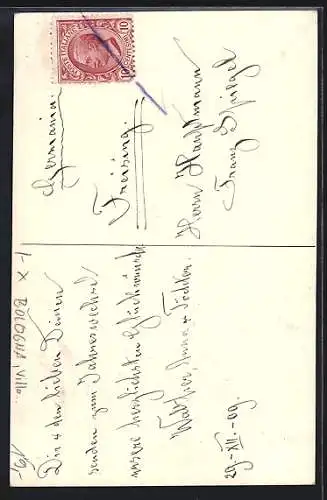 Dir & den lieben Deinen
senden zum Jahreswechsel
unsere herzlichsten Glückwünsche
Walther, Anna & Töchter.
29.-XII.-09.
Herrn Hauptmann
Franz Spiegel
Freising.
Germania.
POSTE ITALIANE
10
10
- X BOLOGNA, Villa.
19,-